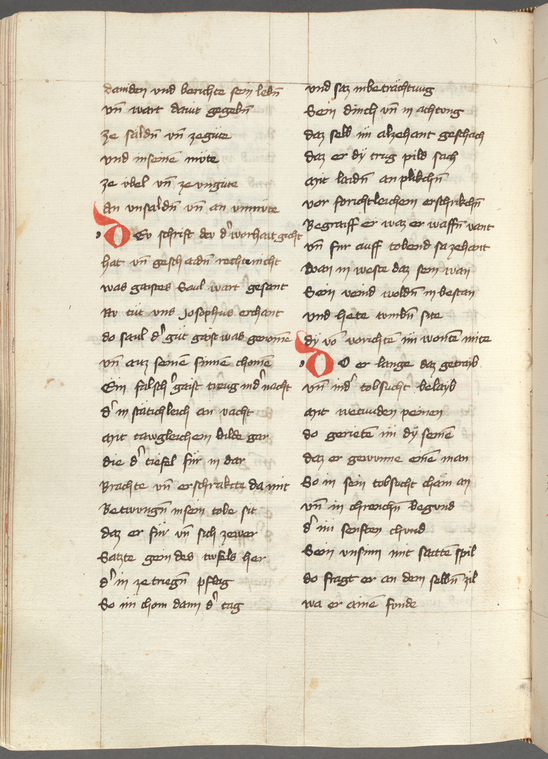 dannden vnd berichte sein lebn̄
vn̄ wart damit gegebn̄
ze saldn̄ vn̄ ze gute
vnd in seinē mute
ze vbel vn̄ ze vngute
An vnsaldn̄ vn̄ an vnmute
Dev schrift der d' worhait gicht
hat vn̄ geschaidn̄ rechte nicht
was gaistes Saul wart gesant
Nv tut vns Josephus erchant
do saul d' gut gaist was genomē
vn̄ auz seinē sinnē chomē
Ein falsch' gaist treug in d' nacht
d' in stätichleich an vacht
mit tawgleichem bilde gar
die d' tiefel für in dar
Brachte vn̄ erschrakcte da mit
Betwungn̄ in sein tobe sit
daz er für vn̄ sich zewer
Satzte gein des tiefels her
d' in ze triegn̄ pflag
So im chom dann d' tag
vnd saz in betrachtung
Sein dinch vn̄ in achtung
daz selb im alzehant geschach
daz er dy trug pild sach
mit laidn̄ anplikchn̄
vor forichtleichem erschrikchn̄
Begraiff er waz er waffn̄ vant
vn̄ fur auff tobend sa zehant
Wan in weste daz sein wan
Sein veind woldn̄ in bestan
vnd hete tumbn̄ site
dy vō vorichtē im wontē mite
Do er lange daz getraib
vn̄ in d' tobsucht belaib
mit wernnden peinen
do gerietē im dy seinē
daz er gewunne einē man
So in sein tobsucht chäm an
vn̄ in chrenchn̄ begund
d' im senften chund
Sein vnsinn mit saitē spil
do fragt er an dem selbn̄ zil
wa er ainē funde